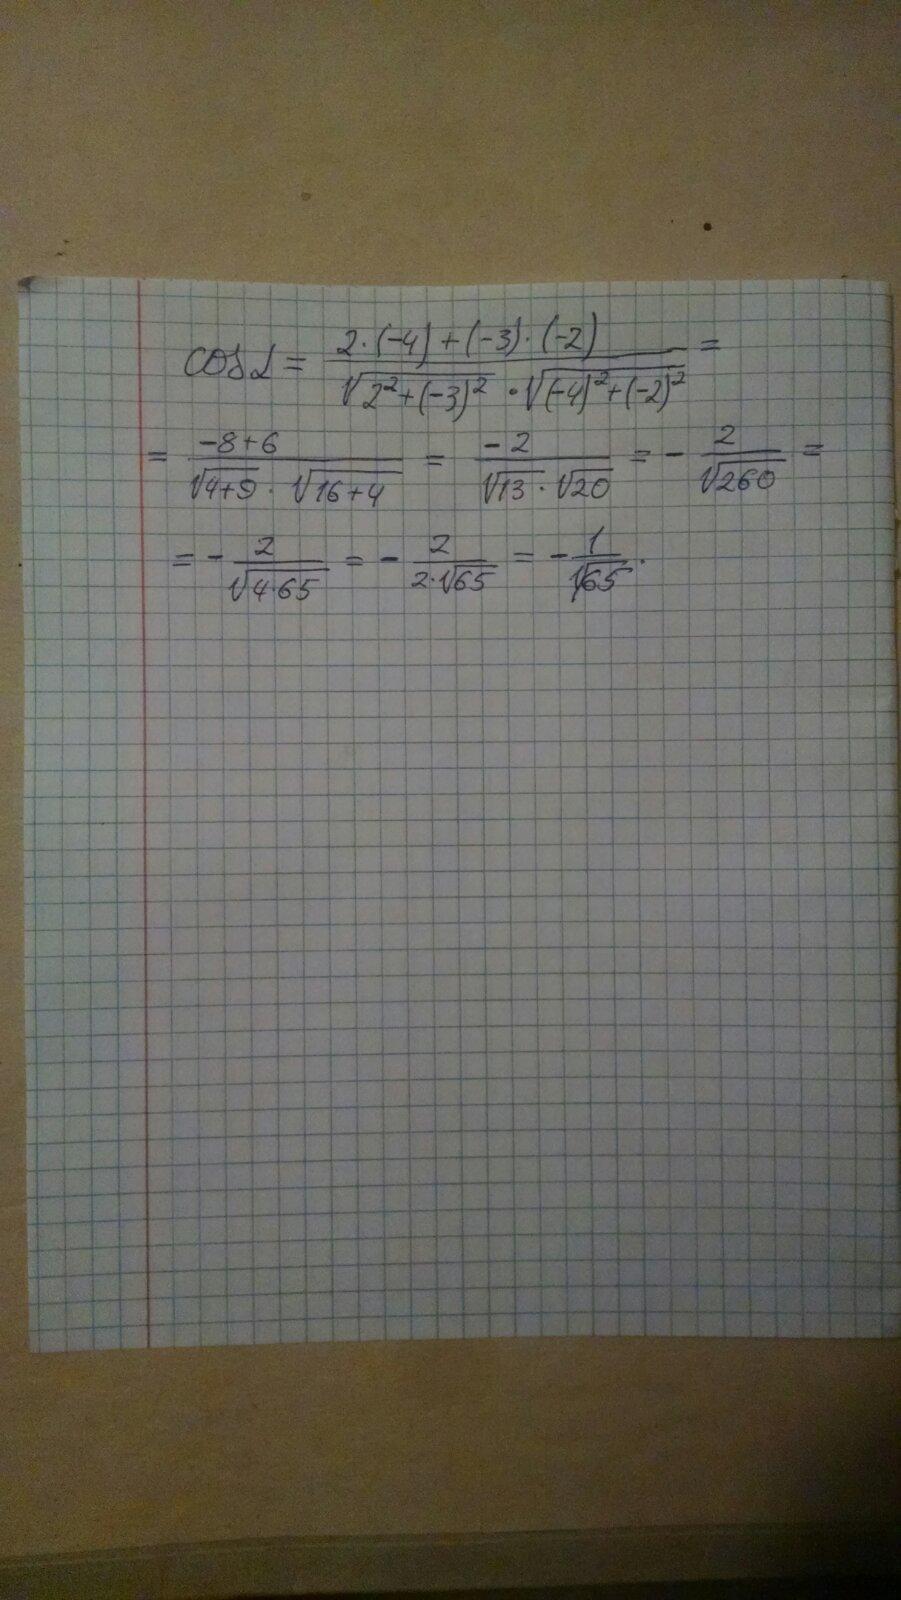 cos α = (2·(-4)+(-3)·(-2))/(√(2²+(-3)²)·√((-4)²+(-2)²)) =
= (-8+6)/(√(4+9)·√(16+4)) = (-2)/(√13·√20) = -2/√260 =
= -2/√(4·65) = -2/(2·√65) = -1/√65.